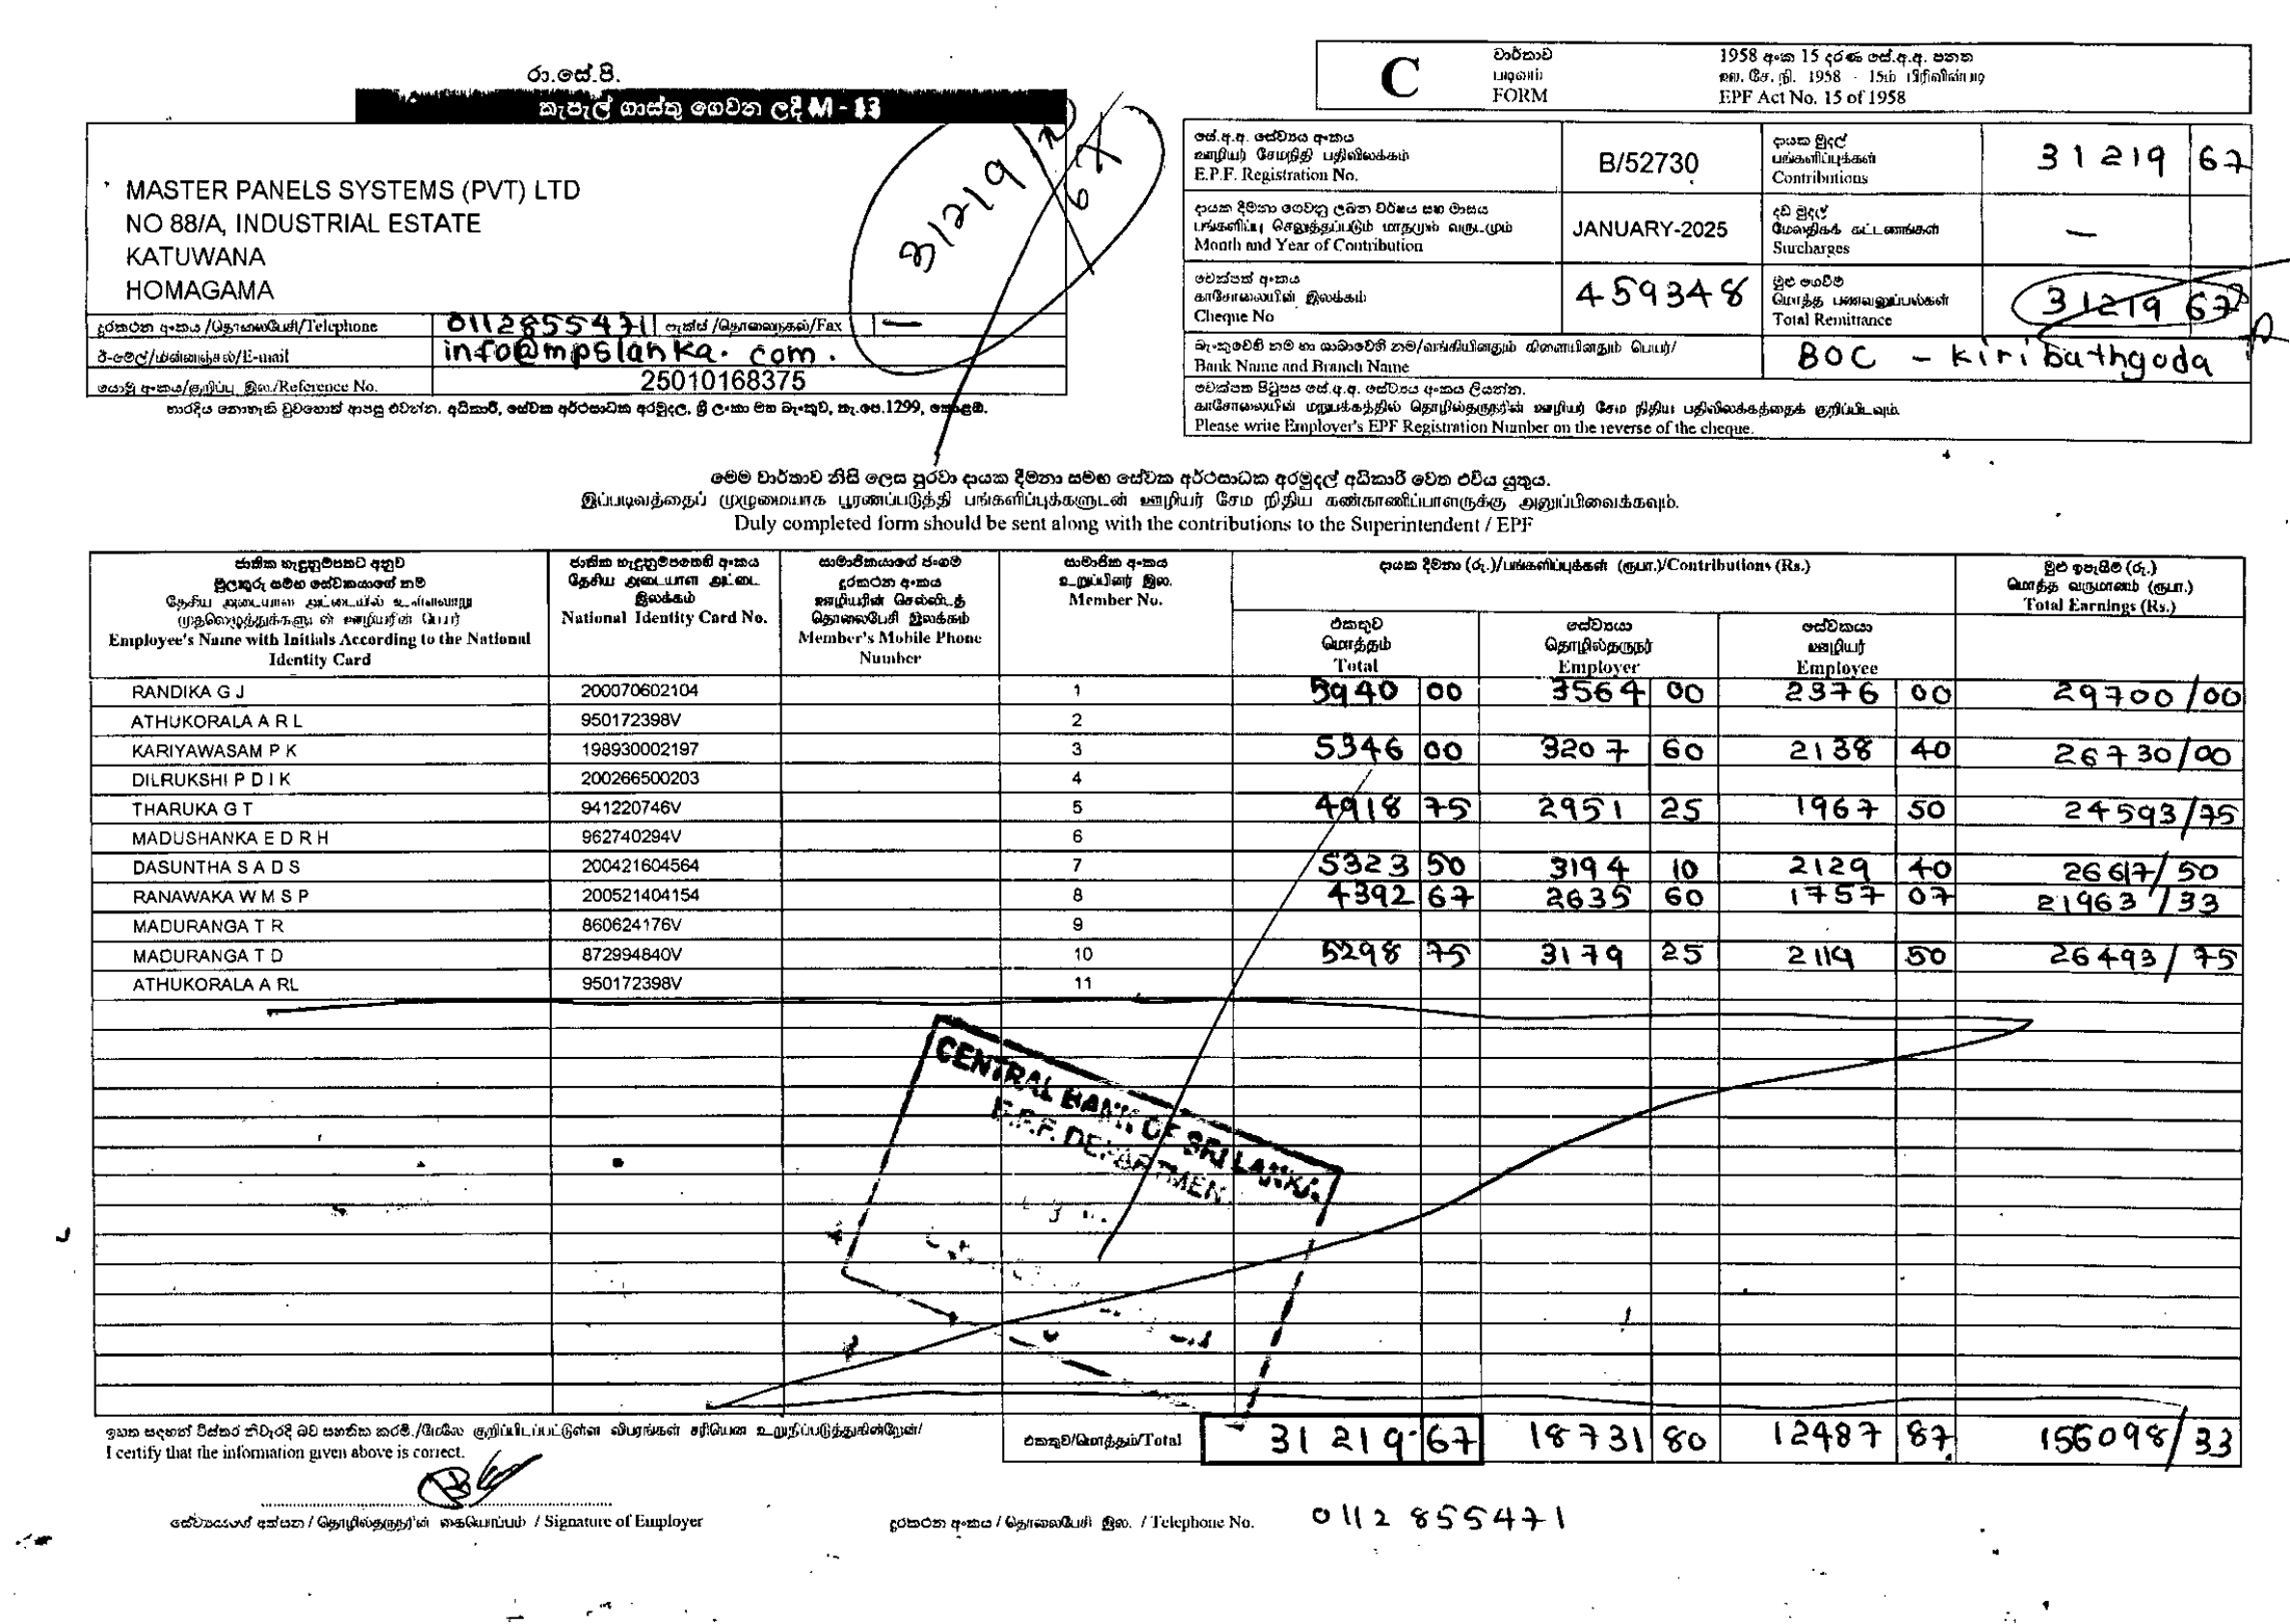 රා.සේ.පි.
කැපැල් ගාස්තු ගෙවන ලදී M - 13
C
වාර්තාව
படிவம்
FORM
1958 අංක 15 දරණ සේ.අ.අ. පනත
ஊ. சே. நி. 1958 - 15ம் பிரிவின்படி
EPF Act No. 15 of 1958
MASTER PANELS SYSTEMS (PVT) LTD
NO 88/A, INDUSTRIAL ESTATE
KATUWANA
HOMAGAMA
31219
67
දුරකථන අංකය /தொலைபேசி/Telephone 0112855471 ෆැක්ස් /தொலைநகல்/Fax —
ඊ-මේල්/மின்னஞ்சல்/E-mail info@mpslanka.com.
යොමු අංකය/குறிப்பு இல./Reference No. 25010168375
භාරදිය නොහැකි වුවහොත් ආපසු එවන්න. අධිකාරී, සේවක අර්ථසාධක අරමුදල, ශ්‍රී ලංකා මහ බැංකුව, තැ.පෙ.1299, කොළඹ.
සේ.අ.අ. සේව්‍යය අංකය
ஊழியர் சேமநிதி பதிவிலக்கம்
E.P.F. Registration No. B/52730
දායක මුදල්
பங்களிப்புக்கள்
Contributions 31219 67
දායක දීමනා ගෙවනු ලබන වර්ෂය සහ මාසය
பங்களிப்பு செலுத்தப்படும் மாதமும் வருடமும்
Month and Year of Contribution JANUARY-2025
දඩ මුදල්
மேலதிகக் கட்டணங்கள்
Surcharges —
චෙක්පත් අංකය
காசோலையின் இலக்கம்
Cheque No 459348
මුළු ගෙවීම්
மொத்த பணவனுப்பல்கள்
Total Remittance 31219 67
බැංකුවෙහි නම හා ශාඛාවෙහි නම/வங்கியினதும் கிளையினதும் பெயர்/
Bank Name and Branch Name BOC - Kiribathgoda
චෙක්පත පිටුපස සේ.අ.අ. සේව්‍යය අංකය ලියන්න.
காசோலையின் மறுபக்கத்தில் தொழில்தருநரின் ஊழியர் சேம நிதிய பதிவிலக்கத்தைக் குறிப்பிடவும்.
Please write Employer's EPF Registration Number on the reverse of the cheque.
මෙම වාර්තාව නිසි ලෙස පුරවා දායක දීමනා සමඟ සේවක අර්ථසාධක අරමුදල් අධිකාරී වෙත එවිය යුතුය.
இப்படிவத்தைப் முழுமையாக பூரணப்படுத்தி பங்களிப்புக்களுடன் ஊழியர் சேம நிதிய கண்காணிப்பாளருக்கு அனுப்பிவைக்கவும்.
Duly completed form should be sent along with the contributions to the Superintendent / EPF
ජාතික හැඳුනුම්පතට අනුව
මුලකුරු සමඟ සේවකයාගේ නම
தேசிய அடையாள அட்டையில் உள்ளவாறு
முதலெழுத்துக்களுடன் ஊழியரின் பெயர்
Employee's Name with Initials According to the National
Identity Card
ජාතික හැඳුනුම්පතෙහි අංකය
தேசிய அடையாள அட்டை
இலக்கம்
National Identity Card No.
සාමාජිකයාගේ ජංගම
දුරකථන අංකය
ஊழியரின் செல்லிடத்
தொலைபேசி இலக்கம்
Member's Mobile Phone
Number
සාමාජික අංකය
உறுப்பினர் இல.
Member No.
දායක දීමනා (රු.)/பங்களிப்புக்கள் (ரூபா.)/Contributions (Rs.)
එකතුව
மொத்தம்
Total
සේව්‍යයා
தொழில்தருநர்
Employer
සේවකයා
ஊழியர்
Employee
මුළු ඉපැයීම් (රු.)
மொத்த வருமானம் (ரூபா.)
Total Earnings (Rs.)
RANDIKA G J 200070602104 1 5940 00 3564 00 2376 00 29700/00
ATHUKORALA A R L 950172398V 2
KARIYAWASAM P K 198930002197 3 5346 00 3207 60 2138 40 26730/00
DILRUKSHI P D I K 200266500203 4
THARUKA G T 941220746V 5 4918 75 2951 25 1967 50 24593/75
MADUSHANKA E D R H 962740294V 6
DASUNTHA S A D S 200421604564 7 5323 50 3194 10 2129 40 26617/50
RANAWAKA W M S P 200521404154 8 4392 67 2635 60 1757 07 21963/33
MADURANGA T R 860624176V 9
MADURANGA T D 872994840V 10 5298 75 3179 25 2119 50 26493/75
ATHUKORALA A RL 950172398V 11
CENTRAL BANK OF SRI LANKA
E.P.F. DEPARTMEN
ඉහත සඳහන් විස්තර නිවැරදි බව සහතික කරමි./மேலே குறிப்பிடப்பட்டுள்ள விபரங்கள் சரியென உறுதிப்படுத்துகின்றேன்/
I certify that the information given above is correct.
එකතුව/மொத்தம்/Total 31219.67 18731 80 12487 87 156098/33
සේව්‍යයාගේ අත්සන / தொழில்தருநரின் கையொப்பம் / Signature of Employer
දුරකථන අංකය / தொலைபேசி இல. / Telephone No. 0112 855471